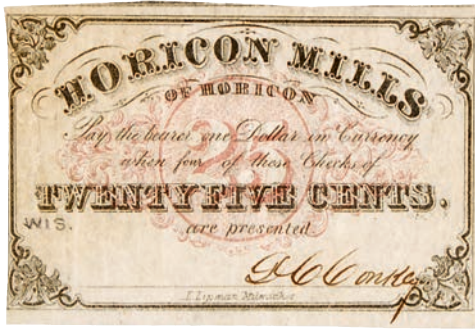 HORICON MILLS
OF HORICON
25
Pay the bearer one Dollar in Currency
when four of these Checks of
TWENTY FIVE CENTS.
WIS.
are presented
L. Lipman Milwaukee